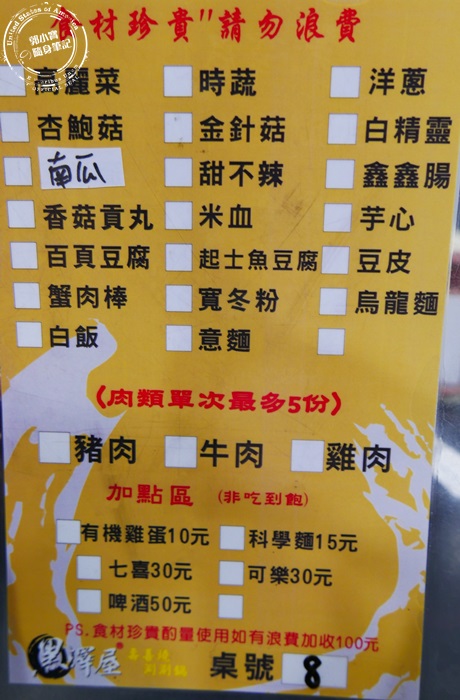 食材珍貴"請勿浪費
高麗菜 時蔬 洋蔥
杏鮑菇 金針菇 白精靈
南瓜 甜不辣 鑫鑫腸
香菇貢丸 米血 芋心
百頁豆腐 起士魚豆腐 豆皮
蟹肉棒 寬冬粉 烏龍麵
白飯 意麵
(肉類單次最多5份)
豬肉 牛肉 雞肉
加點區 (非吃到飽)
有機雞蛋10元 科學麵15元
七喜30元 可樂30元
啤酒50元
PS.食材珍貴酌量使用如有浪費加收100元
黑澤屋 壽喜燒
涮涮鍋
桌號 8
United States of America
郭小寶
隨身筆記